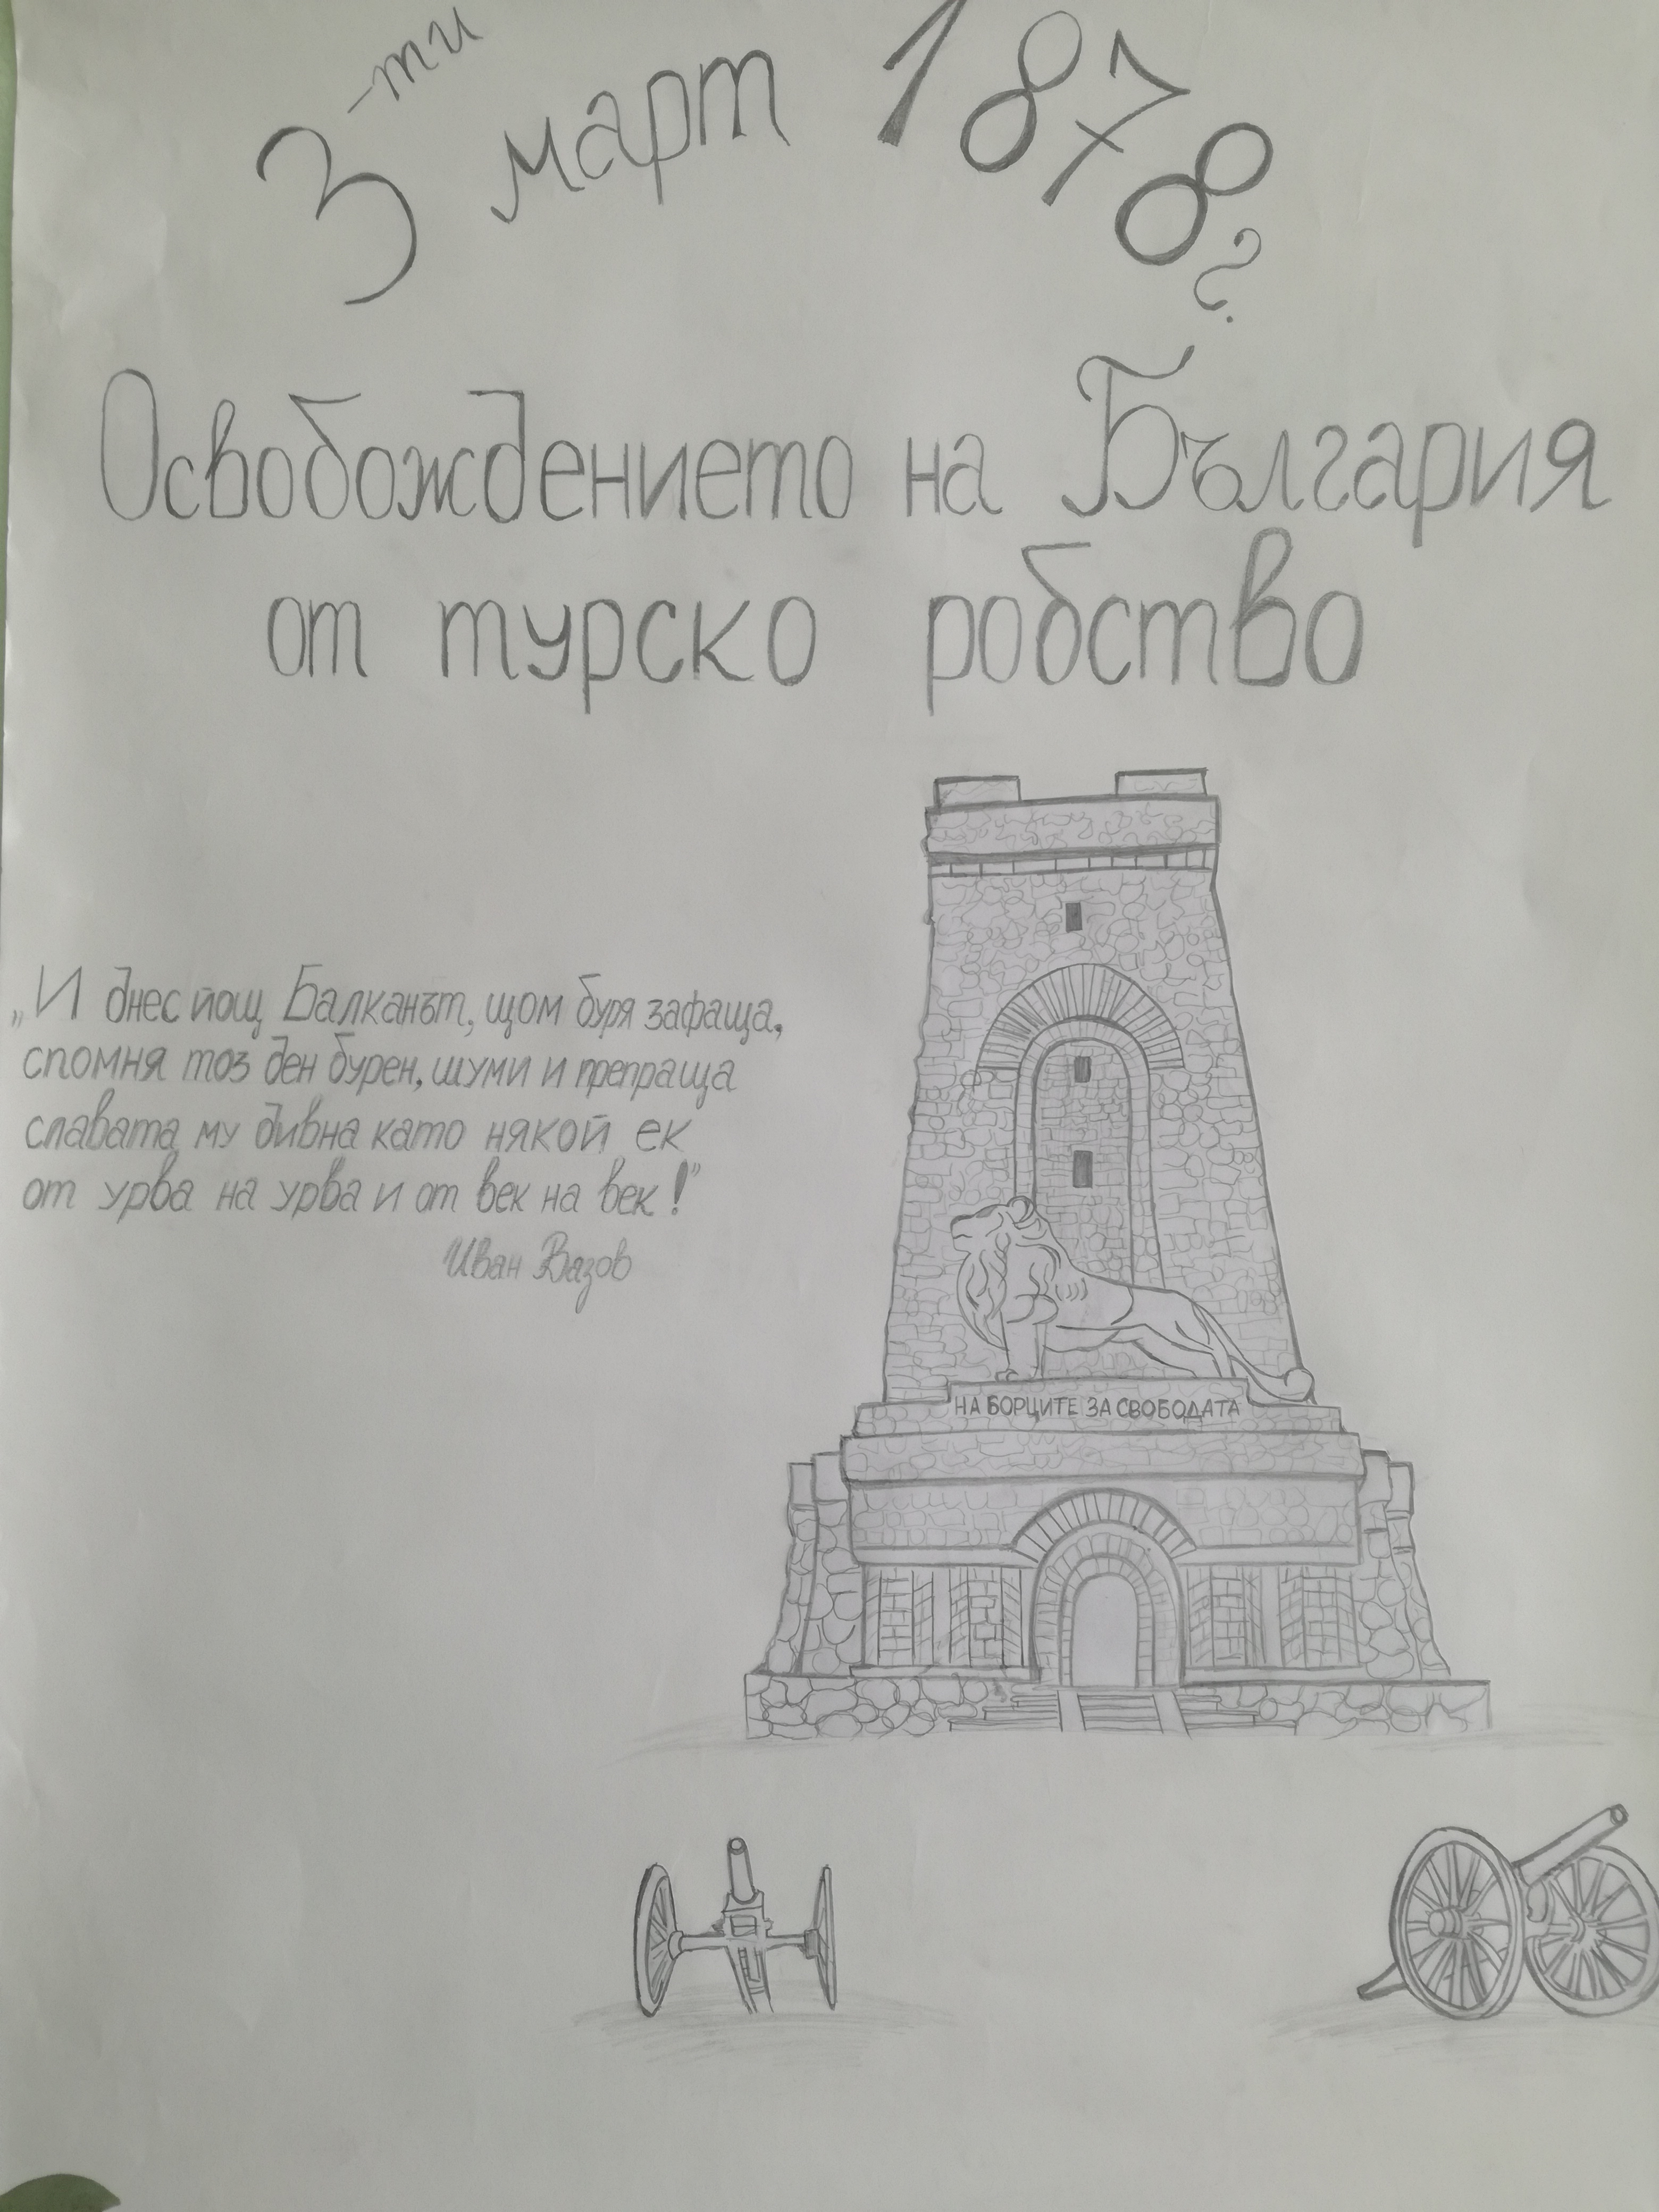 3-ти март 1878 г.
Освобождението на България
от турско робство
„И днес йощ Балканът, щом буря зафаща,
спомня тоз ден бурен, шуми и препраща
славата му дивна като някой ек
от урва на урва и от век на век!”
Иван Вазов
НА БОРЦИТЕ ЗА СВОБОДАТА